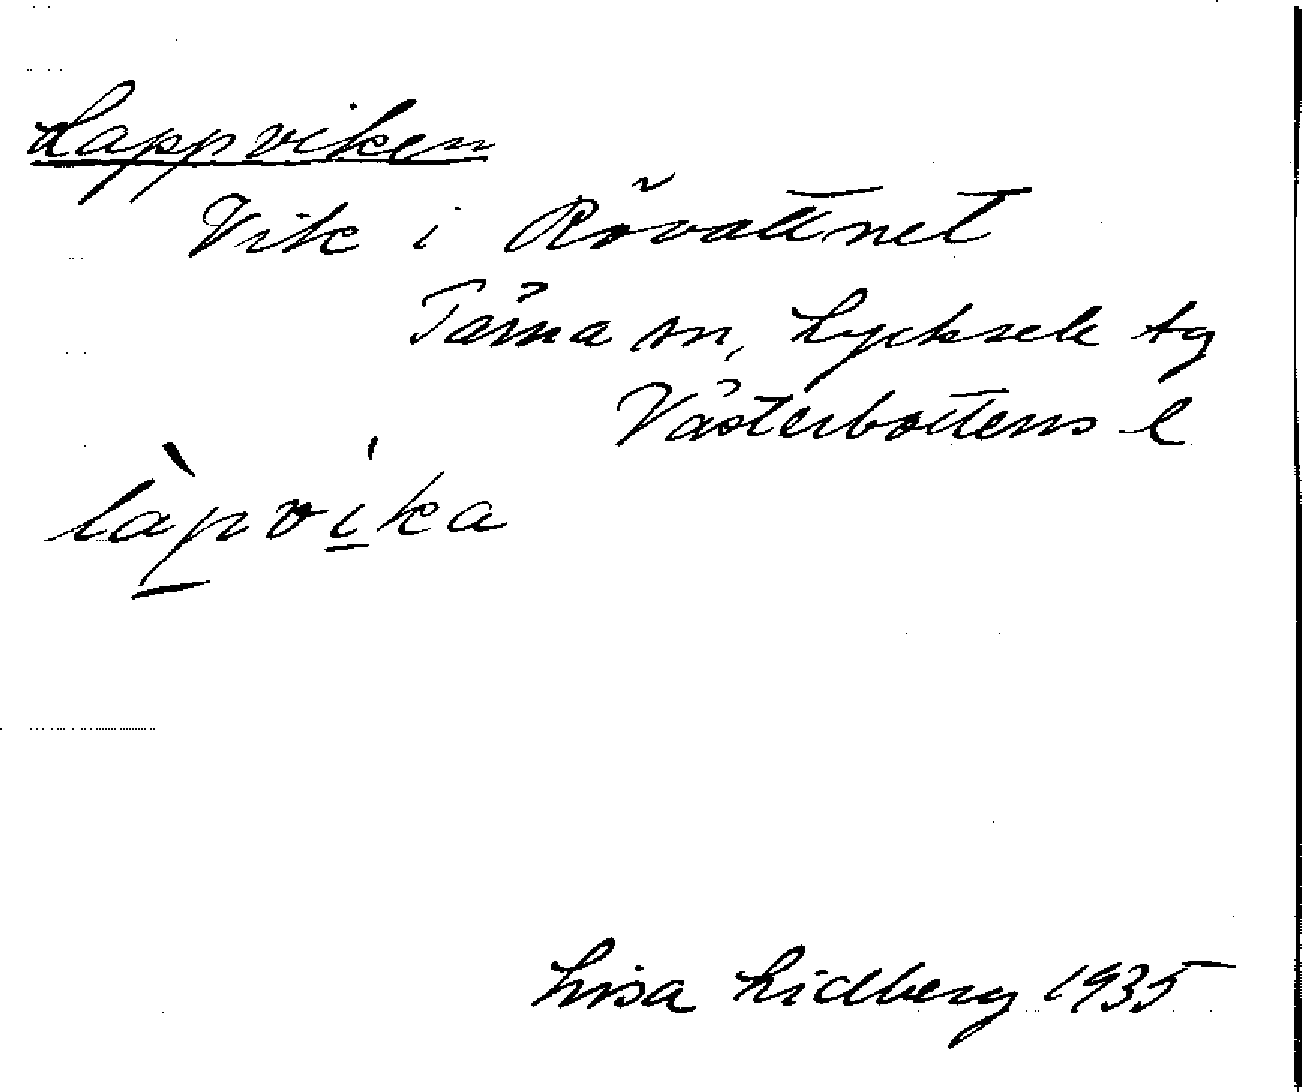 Lappviken
Vik i Rövattnet
Tärna sn, Lycksele tg
Västerbottens l
làpvíka
Lisa Lidberg 1935